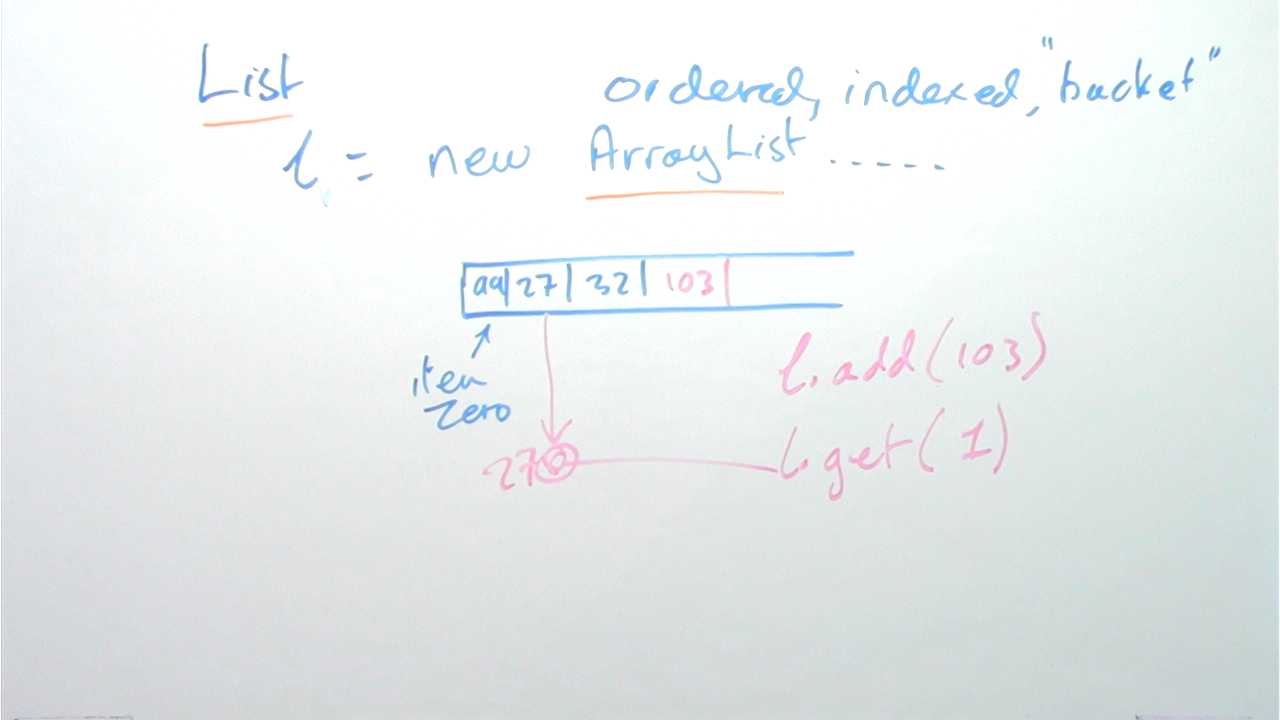 List ordered, indexed, "bucket"
l = new ArrayList .....
99 27 32 103
item
zero
l.add(103)
27
l.get(1)